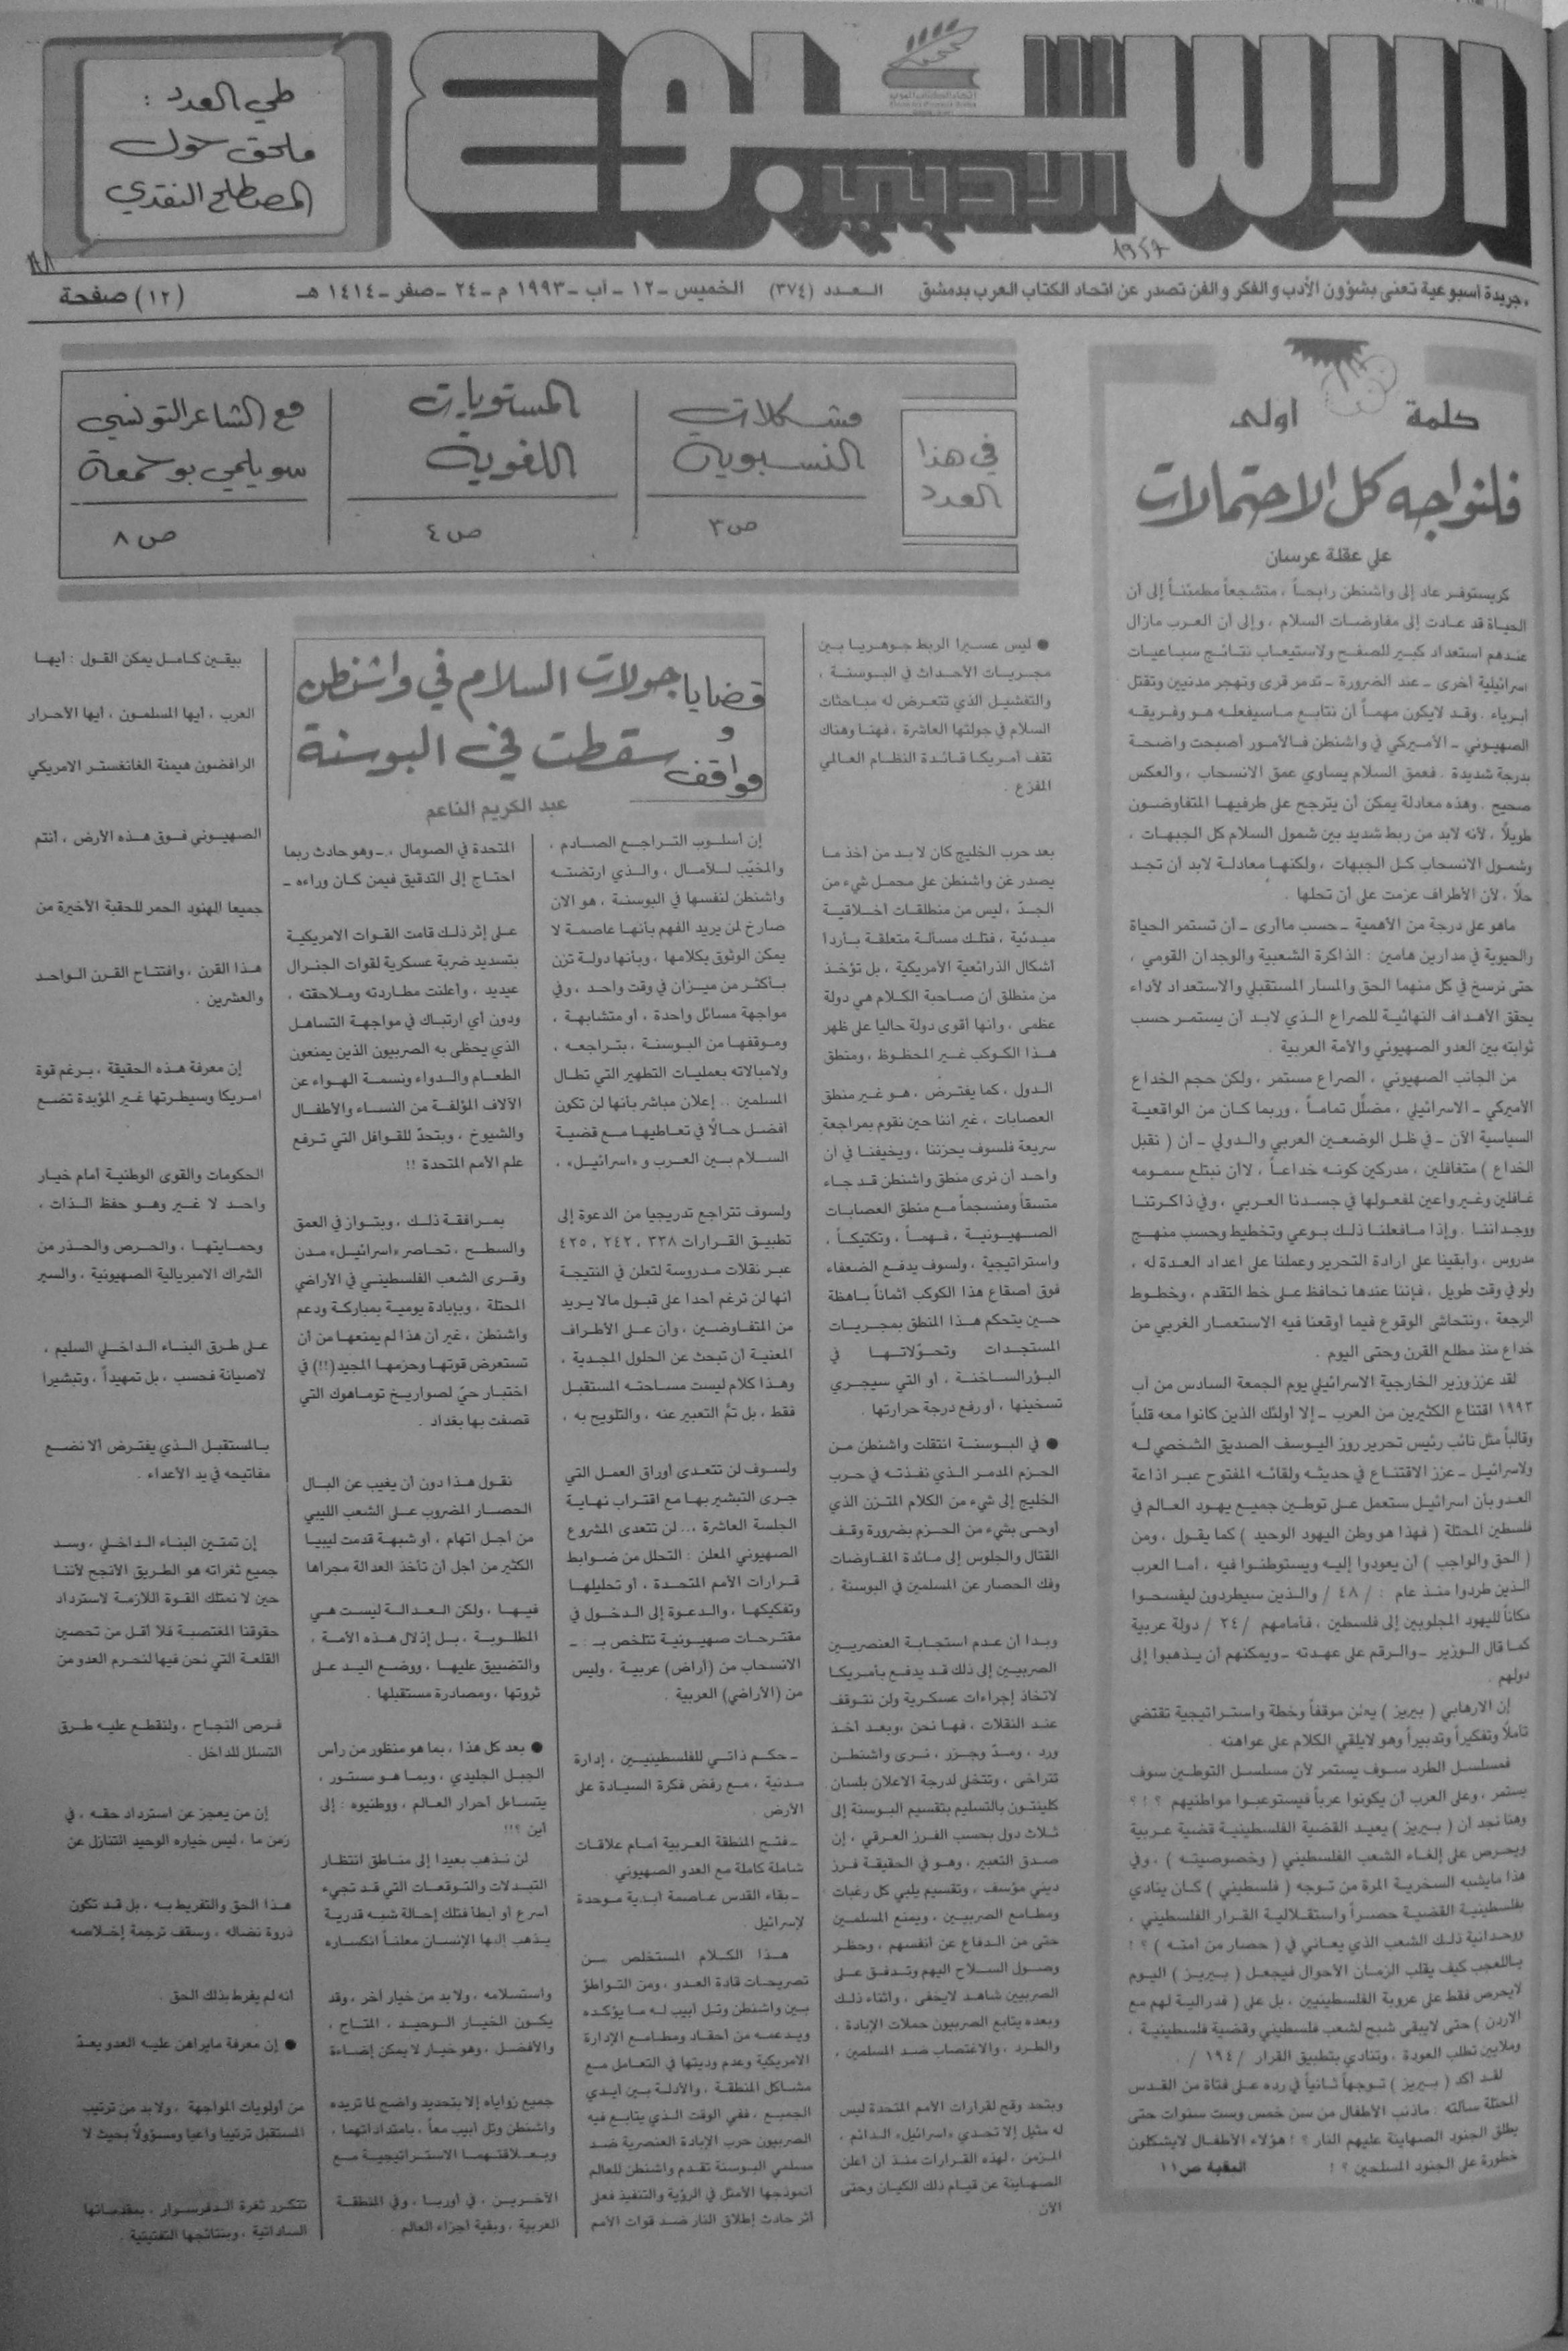 الاسبوع
الأدبي
طي العدد :
ملحق حول
المصطلح النقدي
جريدة أسبوعية تعنى بشؤون الأدب والفكر والفن تصدر عن اتحاد الكتاب العرب بدمشق
العدد (٣٧٤)
الخميس - ١٢ - آب - ١٩٩٣ م - ٢٤ - صفر - ١٤١٤ هـ
(١٢) صفحة
كلمة أولى
فلنواجه كل الاحتمالات
علي عقلة عرسان
كريستوفر عاد إلى واشنطن رابحاً ، متشجعاً مطمئناً إلى أن
الحياة قد عادت إلى مفاوضات السلام ، وإلى أن العرب مازال
عندهم استعداد كبير للصفح ولاستيعاب نتائج سباعيات
اسرائيلية أخرى - عند الضرورة - تدمر قرى وتهجر مدنيين وتقتل
أبرياء . وقد لايكون مهماً أن نتابع ماسيفعله هو وفريقه
الصهيوني - الأميركي في واشنطن فالأمور أصبحت واضحة
بدرجة شديدة . فعمق السلام يساوي عمق الانسحاب ، والعكس
صحيح . وهذه معادلة يمكن أن يترجح على طرفيها المتفاوضون
طويلاً ، لأنه لابد من ربط شديد بين شمول السلام كل الجبهات ،
وشمول الانسحاب كل الجبهات ، ولكنها معادلة لابد أن تجد
حلاً ، لأن الأطراف عزمت على أن تحلها .
ماهو على درجة من الأهمية - حسب ماأرى - أن تستمر الحياة
والحيوية في مدارين هامين : الذاكرة الشعبية والوجدان القومي ،
حتى نرسخ في كل منهما الحق والمسار المستقبلي والاستعداد لأداء
يحقق الأهداف النهائية للصراع الذي لابد أن يستمر حسب
ثوابته بين العدو الصهيوني والأمة العربية .
من الجانب الصهيوني ، الصراع مستمر ، ولكن حجم الخداع
الأميركي - الاسرائيلي ، مضلّل تماماً ، وربما كان من الواقعية
السياسية الآن - في ظل الوضعين العربي والدولي - أن ( نقبل
الخداع ) متغافلين ، مدركين كونه خداعاً ، لاأن نبتلع سمومه
غافلين وغير واعين لمفعولها في جسدنا العربي ، وفي ذاكرتنا
ووجداننا . وإذا مافعلنا ذلك بوعي وتخطيط وحسب منهج
مدروس ، وأبقينا على ارادة التحرير وعملنا على اعداد العدة له ،
ولو في وقت طويل ، فإننا عندها نحافظ على خط التقدم ، وخطوط
الرجعة ، ونتحاشى الوقوع فيما أوقعنا فيه الاستعمار الغربي من
خداع منذ مطلع القرن وحتى اليوم .
لقد عزز وزير الخارجية الاسرائيلي يوم الجمعة السادس من آب
١٩٩٣ اقتناع الكثيرين من العرب - إلا أولئك الذين كانوا معه قلباً
وقالباً مثل نائب رئيس تحرير روز اليوسف الصديق الشخصي له
ولاسرائيل - عزز الاقتناع في حديثه ولقائه المفتوح عبر اذاعة
العدو بأن اسرائيل ستعمل على توطين جميع يهود العالم في
فلسطين المحتلة ( فهذا هو وطن اليهود الوحيد ) كما يقول ، ومن
( الحق والواجب ) أن يعودوا إليه ويستوطنوا فيه ، أما العرب
الذين طردوا منذ عام : / ٤٨ / والذين سيطردون ليفسحوا
مكاناً لليهود المجلوبين إلى فلسطين ، فأمامهم / ٢٤ / دولة عربية
كما قال الوزير - والرقم على عهدته - ويمكنهم أن يذهبوا إلى
دولهم .
إن الارهابي ( بيريز ) يعلن موقفاً وخطة واستراتيجية تقتضي
تأملاً وتفكيراً وتدبيراً وهو لايلقي الكلام على عواهنه .
فمسلسل الطرد سوف يستمر لأن مسلسل التوطين سوف
يستمر ، وعلى العرب أن يكونوا عرباً فيستوعبوا مواطنيهم ؟ ! ؟
وهنا نجد أن ( بيريز ) يعيد القضية الفلسطينية قضية عربية
ويحرص على إلغاء الشعب الفلسطيني ( وخصوصيته ) ، وفي
هذا مايشبه السخرية المرة من توجه ( فلسطيني ) كان ينادي
بفلسطينية القضية حصراً واستقلالية القرار الفلسطيني ،
ووحدانية ذلك الشعب الذي يعاني في ( حصار من أمته ) ؟ !
ياللعجب كيف يقلب الزمان الأحوال فيجعل ( بيريز ) اليوم
لايحرص فقط على عروبة الفلسطينيين ، بل على ( فدرالية لهم مع
الأردن ) حتى لايبقى شبح لشعب فلسطيني وقضية فلسطينية ،
وملايين تطلب العودة ، وتنادي بتطبيق القرار / ١٩٤ / .
لقد أكد ( بيريز ) توجهاً ثانياً في رده على فتاة من القدس
المحتلة سألته : ماذنب الأطفال من سن خمس وست سنوات حتى
يطلق الجنود الصهاينة عليهم النار ؟ ! هؤلاء الأطفال لايشكلون
خطورة على الجنود المسلحين ؟ !
البقية ص ١١
في هذا
العدد
مشكلات
النسبوية
ص ٣
المستويات
اللغوية
ص ٤
مع الشاعر التونسي
سويلمي بوجمعة
ص ٨
قضايا جولات السلام في واشنطن
و
مواقف سقطت في البوسنة
عبد الكريم الناعم
● ليس عسيرا الربط جوهريا بين
مجريات الأحداث في البوسنة ،
والتفشيل الذي تتعرض له مباحثات
السلام في جولتها العاشرة ، فهنا وهناك
تقف أمريكا قائدة النظام العالمي
المفزع .
بعد حرب الخليج كان لا بد من أخذ ما
يصدر عن واشنطن على محمل شيء من
الجدّ ، ليس من منطلقات أخلاقية
مبدئية ، فتلك مسألة متعلقة بأردأ
أشكال الذرائعية الأمريكية ، بل تؤخذ
من منطلق أن صاحبة الكلام هي دولة
عظمى ، وأنها أقوى دولة حاليا على ظهر
هذا الكوكب غير المحظوظ ، ومنطق
الدول ، كما يفترض ، هو غير منطق
العصابات ، غير أننا حين نقوم بمراجعة
سريعة فلسوف يحزننا ، ويخيفنا في آن
واحد أن نرى منطق واشنطن قد جاء
متسقاً ومنسجماً مع منطق العصابات
الصهيونية ، فهماً ، وتكتيكاً ،
واستراتيجية ، ولسوف يدفع الضعفاء
فوق أصقاع هذا الكوكب أثماناً باهظة
حين يتحكم هذا المنطق بمجريات
المستجدات وتحوّلاتها في
البؤر الساخنة ، أو التي سيجري
تسخينها ، أو رفع درجة حرارتها .
● في البوسنة انتقلت واشنطن من
الحزم المدمر الذي نفذته في حرب
الخليج إلى شيء من الكلام المتزن الذي
أوحى بشيء من الحزم بضرورة وقف
القتال والجلوس إلى مائدة المفاوضات
وفك الحصار عن المسلمين في البوسنة .
وبدا أن عدم استجابة العنصريين
الصربيين إلى ذلك قد يدفع بأمريكا
لاتخاذ إجراءات عسكرية ولن نتوقف
عند النقلات ، فها نحن ، وبعد أخذ
ورد ، ومدّ وجزر ، نرى واشنطن
تتراخى ، وتتخلى لدرجة الاعلان بلسان
كلينتون بالتسليم بتقسيم البوسنة إلى
ثلاث دول بحسب الفرز العرقي ، إن
صدق التعبير ، وهو في الحقيقة فرز
ديني مؤسف ، وتقسيم يلبي كل رغبات
ومطامع الصربيين ، ويمنع المسلمين
حتى من الدفاع عن أنفسهم ، وحظر
وصول السلاح اليهم وتدفق على
الصربيين شاهد لايخفى ، وأثناء ذلك
وبعده يتابع الصربيون حملات الإبادة ،
والطرد ، والاغتصاب ضد المسلمين ،
وبتحد وقح لقرارات الأمم المتحدة ليس
له مثيل إلا تحدي «اسرائيل» الدائم ،
المزمن ، لهذه القرارات منذ أن أعلن
الصهاينة عن قيام ذلك الكيان وحتى
الآن
إن أسلوب التراجع الصادم ،
والمخيّب للآمال ، والذي ارتضته
واشنطن لنفسها في البوسنة ، هو الآن
صارخ لمن يريد الفهم بأنها عاصمة لا
يمكن الوثوق بكلامها ، وبأنها دولة تزن
بأكثر من ميزان في وقت واحد ، وفي
مواجهة مسائل واحدة ، أو متشابهة ،
وموقفها من البوسنة ، بتراجعه ،
ولامبالاته بعمليات التطهير التي تطال
المسلمين .. إعلان مباشر بأنها لن تكون
أفضل حالاً في تعاطيها مع قضية
السلام بين العرب و «اسرائيل» ،
ولسوف تتراجع تدريجيا من الدعوة إلى
تطبيق القرارات ٣٣٨ ، ٢٤٢ ، ٤٢٥
عبر نقلات مدروسة لتعلن في النتيجة
أنها لن ترغم أحدا على قبول مالا يريد
من المتفاوضين ، وأن على الأطراف
المعنية أن تبحث عن الحلول المجدية ،
وهذا كلام ليست مساحته المستقبل
فقط ، بل تمّ التعبير عنه ، والتلويح به ،
ولسوف لن تتعدى أوراق العمل التي
جرى التبشير بها مع اقتراب نهاية
الجلسة العاشرة ... لن تتعدى المشروع
الصهيوني المعلن : التحلل من ضوابط
قرارات الأمم المتحدة ، أو تحليلها
وتفكيكها ، والدعوة إلى الدخول في
مقترحات صهيونية تتلخص بـ : -
الانسحاب من (أراض) عربية ، وليس
من (الأراضي) العربية .
- حكم ذاتي للفلسطينيين ، إدارة
مدنية ، مع رفض فكرة السيادة على
الأرض .
- فتح المنطقة العربية أمام علاقات
شاملة كاملة مع العدو الصهيوني
- بقاء القدس عاصمة أبدية موحدة
لإسرائيل .
هذا الكلام المستخلص من
تصريحات قادة العدو ، ومن التواطؤ
بين واشنطن وتل أبيب له ما يؤكده
ويدعمه من أحقاد ومطامع الإدارة
الامريكية وعدم وديتها في التعامل مع
مشاكل المنطقة ، والأدلة بين أيدي
الجميع ، ففي الوقت الذي يتابع فيه
الصربيون حرب الإبادة العنصرية ضد
مسلمي البوسنة تقدم واشنطن للعالم
أنموذجها الأمثل في الرؤية والتنفيذ فعلى
أثر حادث إطلاق النار ضد قوات الأمم
المتحدة في الصومال ، - وهو حادث ربما
احتاج إلى التدقيق فيمن كان وراءه -
على إثر ذلك قامت القوات الامريكية
بتسديد ضربة عسكرية لقوات الجنرال
عيديد ، وأعلنت مطاردته وملاحقته ،
ودون أي ارتباك في مواجهة التساهل
الذي يحظى به الصربيون الذين يمنعون
الطعام والدواء ونسمة الهواء عن
الآلاف المؤلفة من النساء والأطفال
والشيوخ ، وبتحدّ للقوافل التي ترفع
علم الأمم المتحدة !!
بمرافقة ذلك ، وبتواز في العمق
والسطح ، تحاصر «اسرائيل» مدن
وقرى الشعب الفلسطيني في الأراضي
المحتلة ، وبإبادة يومية بمباركة ودعم
واشنطن ، غير أن هذا لم يمنعها من أن
تستعرض قوتها وحزمها المجيد (!!) في
اختبار حيّ لصواريخ توماهوك التي
قصفت بها بغداد .
نقول هذا دون أن يغيب عن البال
الحصار المضروب على الشعب الليبي
من أجل اتهام ، أو شبهة قدمت ليبيا
الكثير من أجل أن تأخذ العدالة مجراها
فيها ، ولكن العدالة ليست هي
المطلوبة ، بل إذلال هذه الأمة ،
والتضييق عليها ، ووضع اليد على
ثروتها ، ومصادرة مستقبلها .
● بعد كل هذا ، بما هو منظور من رأس
الجبل الجليدي ، وبما هو مستور ،
يتساءل أحرار العالم ، ووطنيوه : إلى
أين ؟!!
لن نذهب بعيدا إلى مناطق انتظار
التبدلات والتوقعات التي قد تجيء
أسرع أو أبطأ فتلك إحالة شبه قدرية
يذهب إليها الإنسان معلناً انكساره
واستسلامه ، ولا بد من خيار آخر ، وقد
يكون الخيار الوحيد ، المتاح ،
والأفضل ، وهو خيار لا يمكن إضاءة
جميع زواياه إلا بتحديد واضح لما تريده
واشنطن وتل أبيب معاً ، بامتداداتهما ،
وبعلاقتهما الاستراتيجية مع
الآخرين ، في أوربا ، وفي المنطقة
العربية ، وبقية أجزاء العالم .
بيقين كامل يمكن القول : أيها
العرب ، أيها المسلمون ، أيها الأحرار
الرافضون هيمنة الغانغستر الامريكي
الصهيوني فوق هذه الأرض ، أنتم
جميعا الهنود الحمر للحقبة الأخيرة من
هذا القرن ، وافتتاح القرن الواحد
والعشرين .
إن معرفة هذه الحقيقة ، برغم قوة
امريكا وسيطرتها غير المؤبدة تضع
الحكومات والقوى الوطنية أمام خيار
واحد لا غير وهو حفظ الذات ،
وحمايتها ، والحرص والحذر من
الشراك الامبريالية الصهيونية ، والسير
على طرق البناء الداخلي السليم ،
لاصيانة فحسب ، بل تمهيداً ، وتبشيرا
بالمستقبل الذي يفترض ألا نضع
مفاتيحه في يد الأعداء .
إن تمتين البناء الداخلي ، وسد
جميع ثغراته هو الطريق الأنجح لأننا
حين لا نمتلك القوة اللازمة لاسترداد
حقوقنا المغتصبة فلا أقل من تحصين
القلعة التي نحن فيها لنحرم العدو من
فرص النجاح ، ولنقطع عليه طرق
التسلل للداخل .
إن من يعجز عن استرداد حقه ، في
زمن ما ، ليس خياره الوحيد التنازل عن
هذا الحق والتفريط به ، بل قد تكون
ذروة نضاله ، وسقف ترجمة إخلاصه
أنه لم يفرط بذلك الحق .
● إن معرفة مايراهن عليه العدو يعدّ
من أولويات المواجهة ، ولا بد من ترتيب
المستقبل ترتيبا واعيا ومسؤولاً بحيث لا
تتكرر ثغرة الدفرسوار ، بمقدماتها
الساداتية ، وبنتائجها التفتيتية .